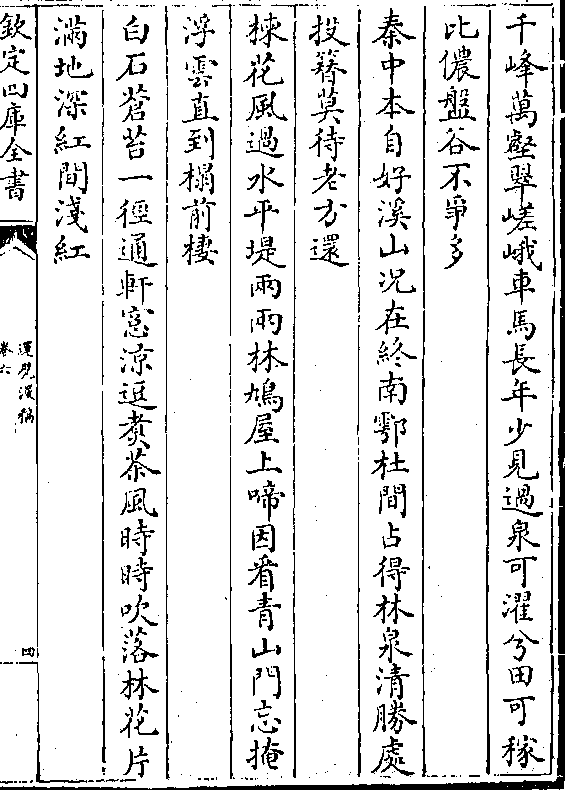 千峰萬壑翠嵯峨車馬長年少見過泉可濯兮田可稼
比儂盤谷不爭多
秦中本自好溪山况在終南鄠杜間占得林泉清勝處
投簪莫待老方還
楝花風過水平堤兩兩林鳩屋上啼因看青山門忘掩
浮雲直到榻前棲
白石蒼苔一徑通軒窓凉逗煮茶風時時吹落林花片
滿地深紅間淺紅
欽定四庫全書
運甓漫稿
卷六
四